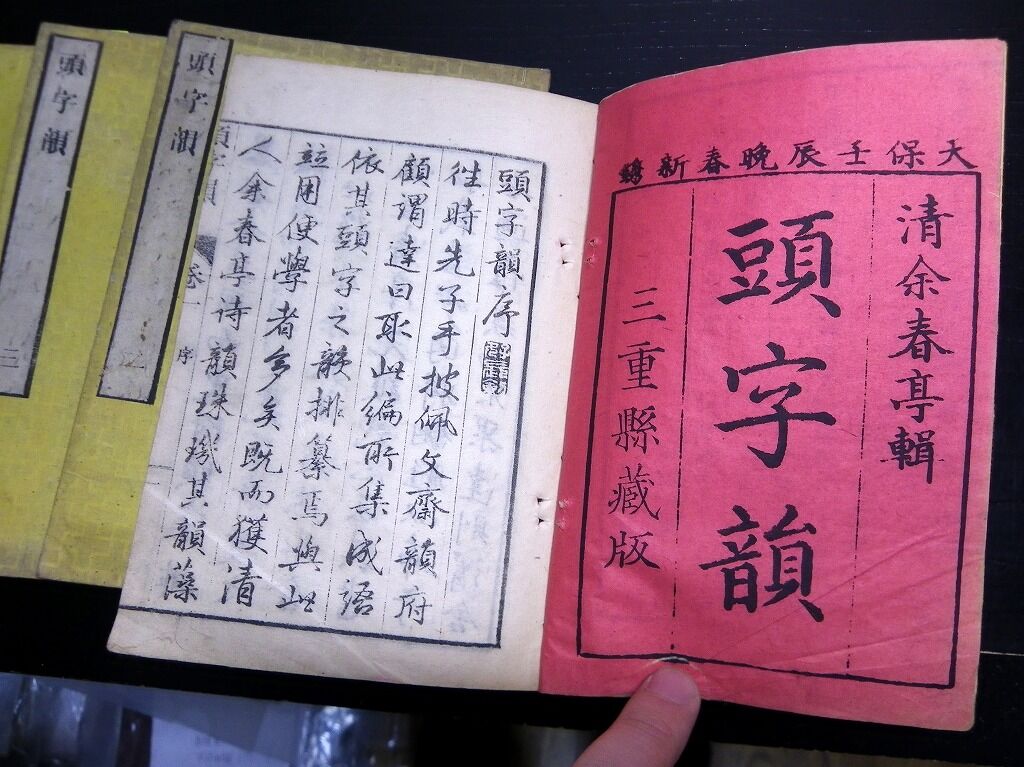 天保壬辰晩春新鐫
清余春亭輯
頭字韻
三重縣藏版
頭字韻序
往時先子手披佩文齋韻府
顧謂達曰取此編所集成語
依其頭字之韻排纂焉與此
竝用便學者多矣既而獲清
人余春亭诗韻珠璣其韻藻
卷一
序
頭字韻
頭字韻 三